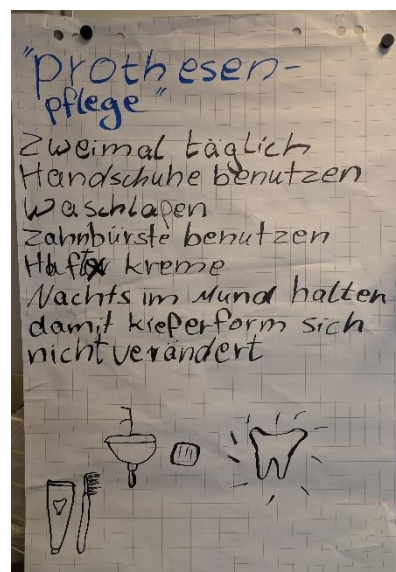 "Prothesen-
pflege"
Zweimal täglich
Handschuhe benutzen
Waschlapen
Zahnbürste benutzen
Haft kreme
Nachts im Mund halten
damit kieferform sich
nicht verändert